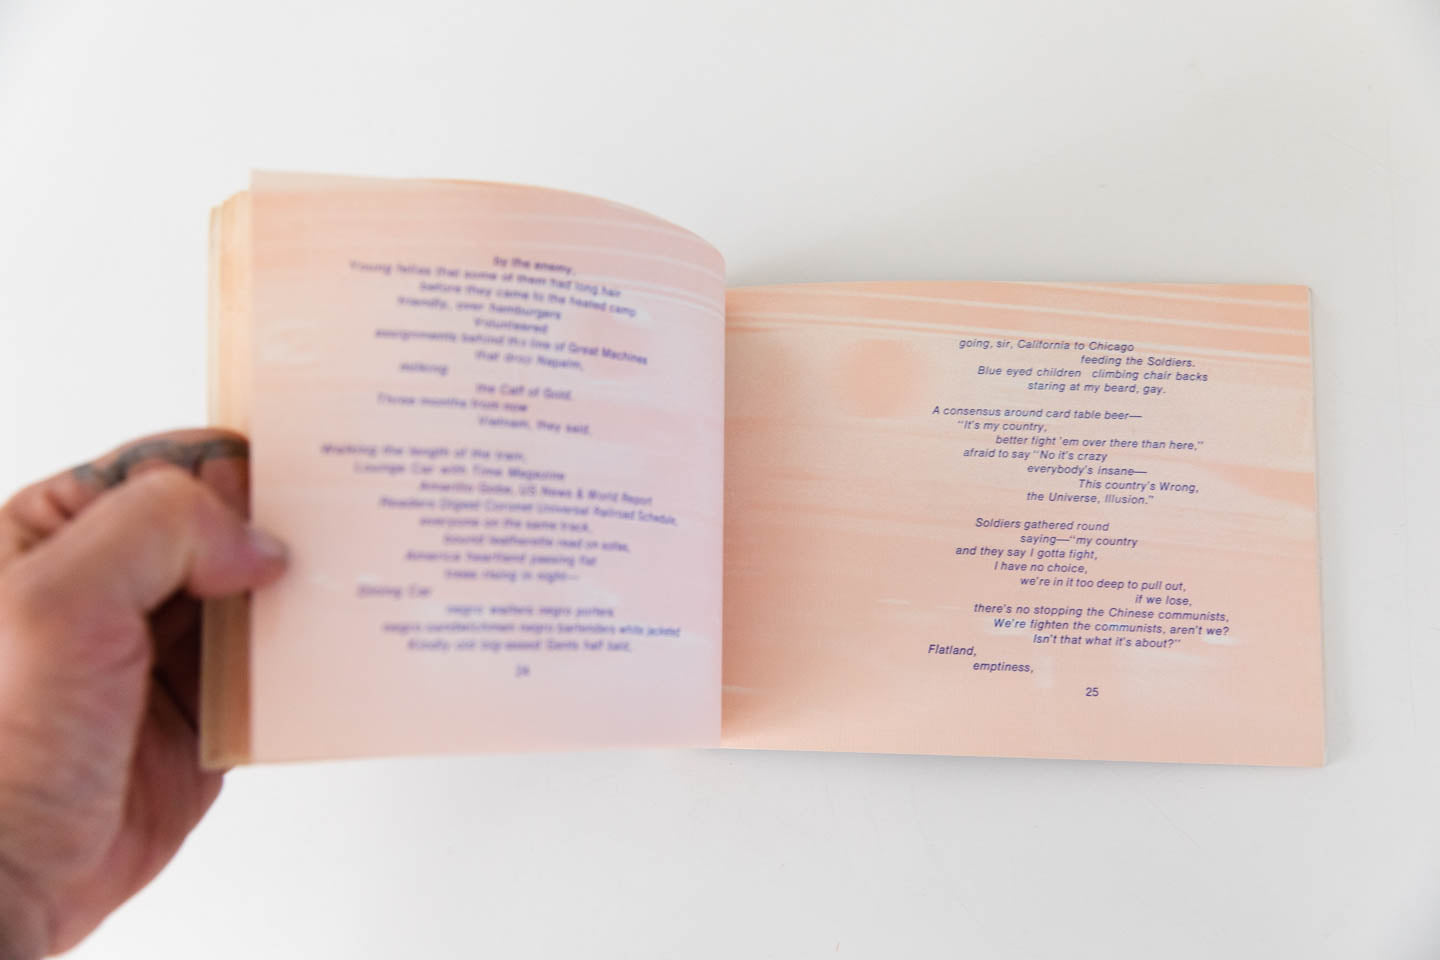 by the enemy,
Young fellas that some of them had long hair
before they came to the heated camp
friendly, over hamburgers
Volunteered
assignments behind the line of Great Machines
that drop Napalm,
milking
the Calf of Gold.
Three months from now
Vietnam, they said.
Walking the length of the train,
Lounge Car with Time Magazine
Amarillo Globe, US News & World Report
Readers Digest Coronet Universal Railroad Schedule,
everyone on the same track,
bound leatherette read on sofas,
America heartland passing flat
trees rising in night—
Dining Car
negro waiters negro porters
negro sandwichmen negro bartenders white jacketed
Gents half bald,
24
going, sir, California to Chicago
feeding the Soldiers.
Blue eyed children climbing chair backs
staring at my beard, gay.
A consensus around card table beer—
"It's my country,
better fight 'em over there than here,"
afraid to say "No it's crazy
everybody's insane—
This country's Wrong,
the Universe, Illusion."
Soldiers gathered round
saying—"my country
and they say I gotta fight,
I have no choice,
we're in it too deep to pull out,
if we lose,
there's no stopping the Chinese communists,
We're fighten the communists, aren't we?
Isn't that what it's about?"
Flatland,
emptiness,
25